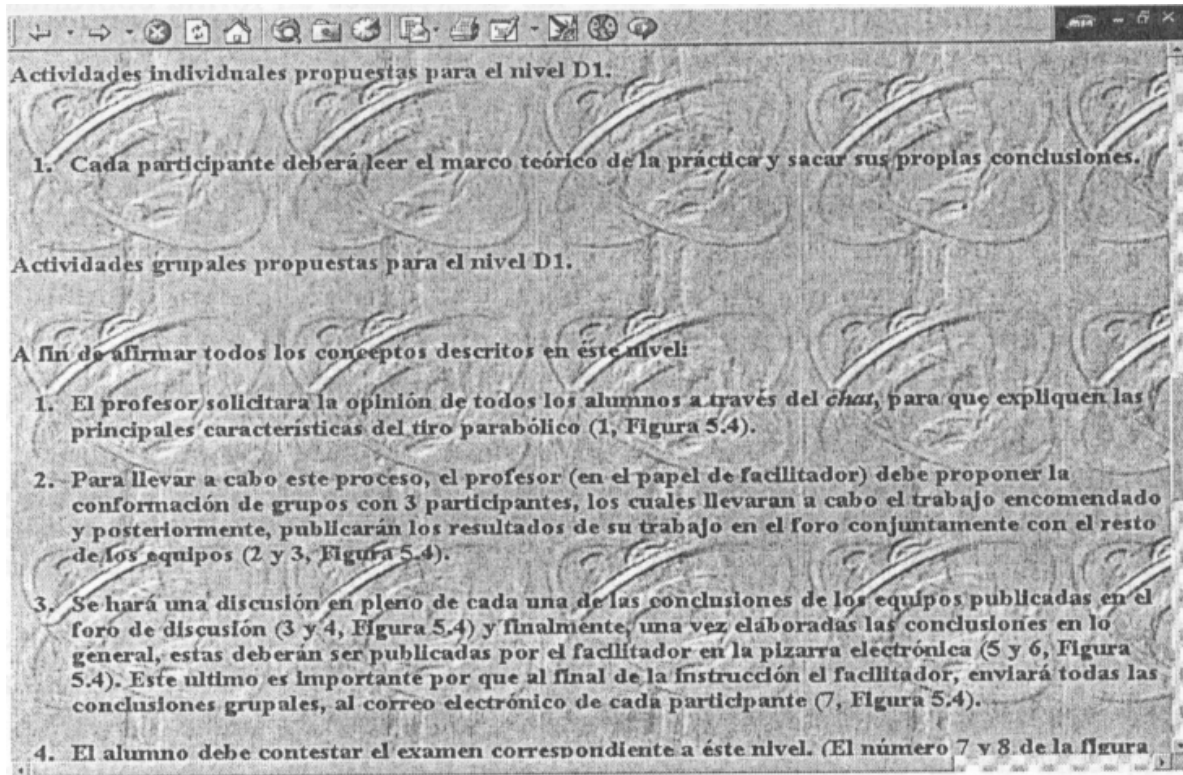 msn
Actividades individuales propuestas para el nivel D1.
1. Cada participante deberá leer el marco teórico de la práctica y sacar sus propias conclusiones.
Actividades grupales propuestas para el nivel D1.
A fin de afirmar todos los conceptos descritos en éste nivel:
1. El profesor solicitara la opinión de todos los alumnos a través del chat, para que expliquen las
principales características del tiro parabólico (1, Figura 5.4).
2. Para llevar a cabo este proceso, el profesor (en el papel de facilitador) debe proponer la
conformación de grupos con 3 participantes, los cuales llevaran a cabo el trabajo encomendado
y posteriormente, publicarán los resultados de su trabajo en el foro conjuntamente con el resto
de los equipos (2 y 3, Figura 5.4).
3. Se hará una discusión en pleno de cada una de las conclusiones de los equipos publicadas en el
foro de discusión (3 y 4, Figura 5.4) y finalmente, una vez elaboradas las conclusiones en lo
general, estas deberán ser publicadas por el facilitador en la pizarra electrónica (5 y 6, Figura
5.4). Este ultimo es importante por que al final de la instrucción el facilitador, enviará todas las
conclusiones grupales, al correo electrónico de cada participante (7, Figura 5.4).
4. El alumno debe contestar el examen correspondiente a éste nivel. (El número 7 y 8 de la figura